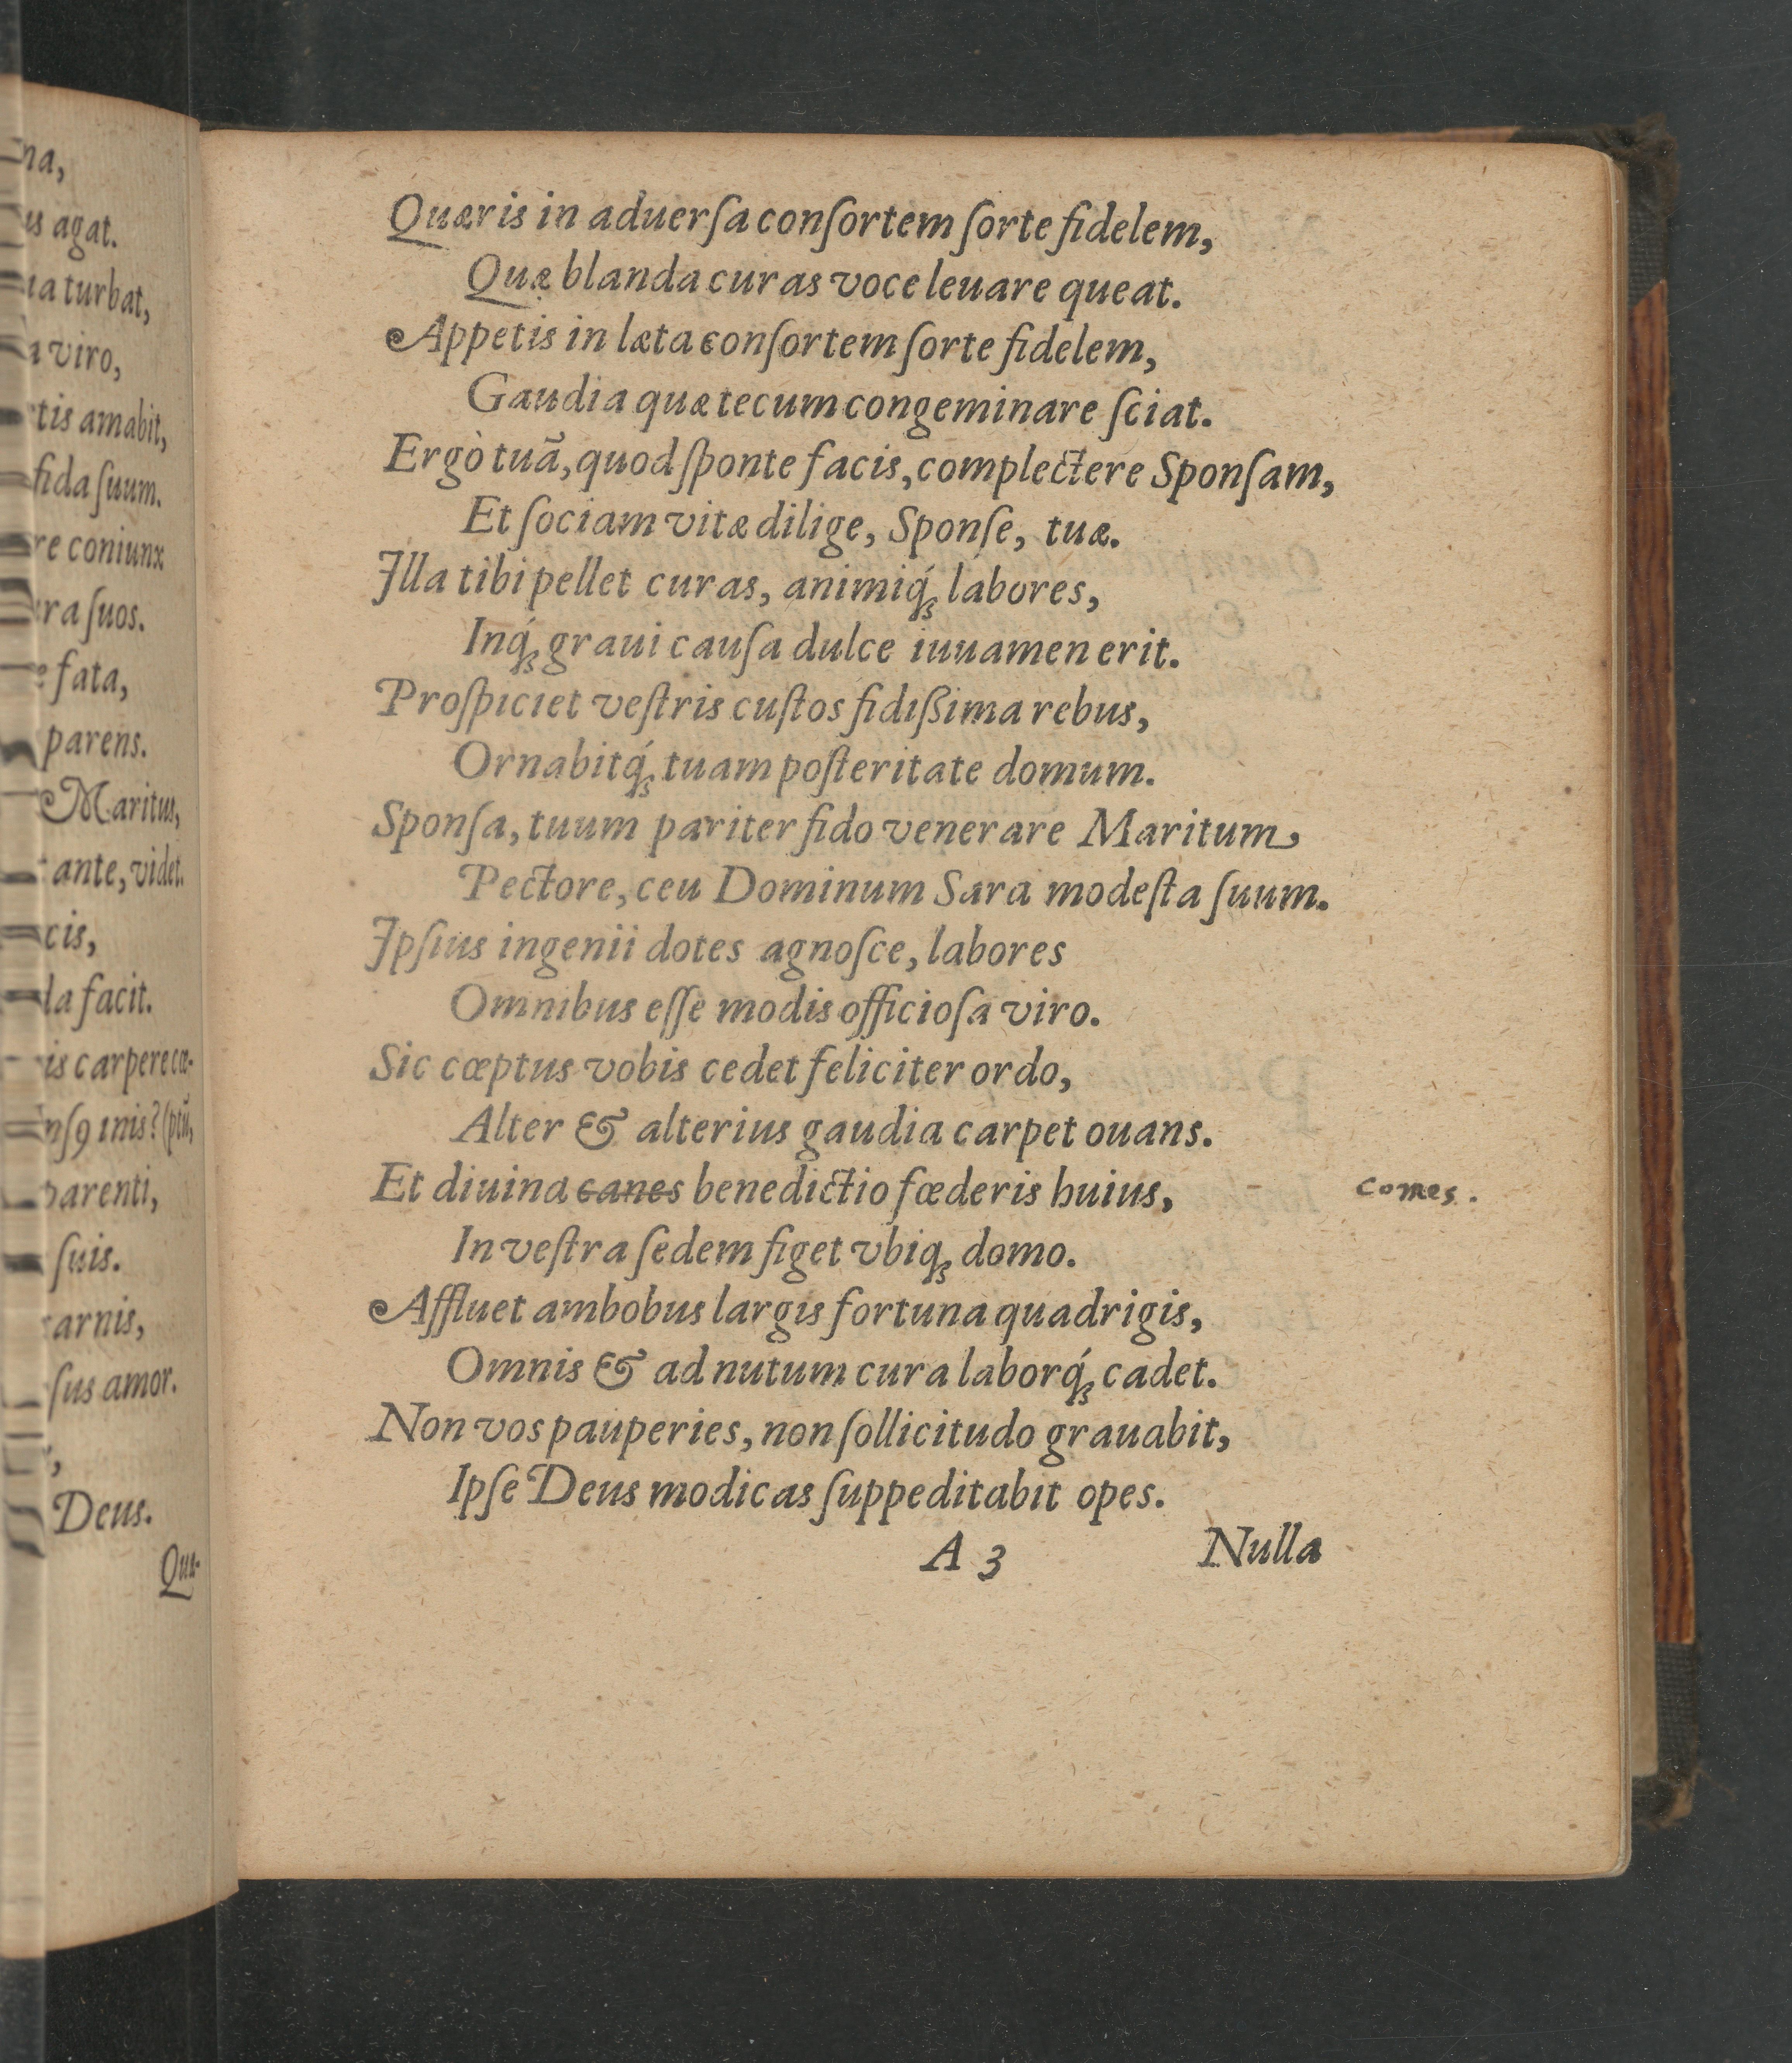 na,
us agat.
ia turbat,
a viro,
tis amabit,
fida ſuum.
re coniunx
ra ſuos.
fata,
parens.
Maritus,
ante, videt.
cis,
la facit.
is carpere cœ-
inis? (ptũ,
parenti,
ſuis.
arnis,
ſus amor.
Deus.
Quæ-
Quæris in aduerſa conſortem ſorte fidelem,
Quæ blanda curas voce leuare queat.
Appetis in læta conſortem ſorte fidelem,
Gaudia quæ tecum congeminare ſciat.
Ergò tuã, quod ſponte facis, complectere Sponſam,
Et ſociam vitæ dilige, Sponſe, tuæ.
Illa tibi pellet curas, animiq́; labores,
Inq́; graui cauſa dulce iuuamen erit.
Proſpiciet veſtris cuſtos fidißima rebus,
Ornabitq́; tuam poſteritate domum.
Sponſa, tuum pariter fido venerare Maritum,
Pectore, ceu Dominum Sara modeſta ſuum.
Ipſius ingenii dotes agnoſce, labores
Omnibus eſſe modis officioſa viro.
Sic cœptus vobis cedet feliciter ordo,
Alter & alterius gaudia carpet ouans.
Et diuina canes benedictio fœderis huius, comes.
In veſtra ſedem figet vbiq; domo.
Affluet ambobus largis fortuna quadrigis,
Omnis & ad nutum cura laborq́; cadet.
Non vos pauperies, non ſollicitudo grauabit,
Ipſe Deus modicas ſuppeditabit opes.
A 3 Nulla